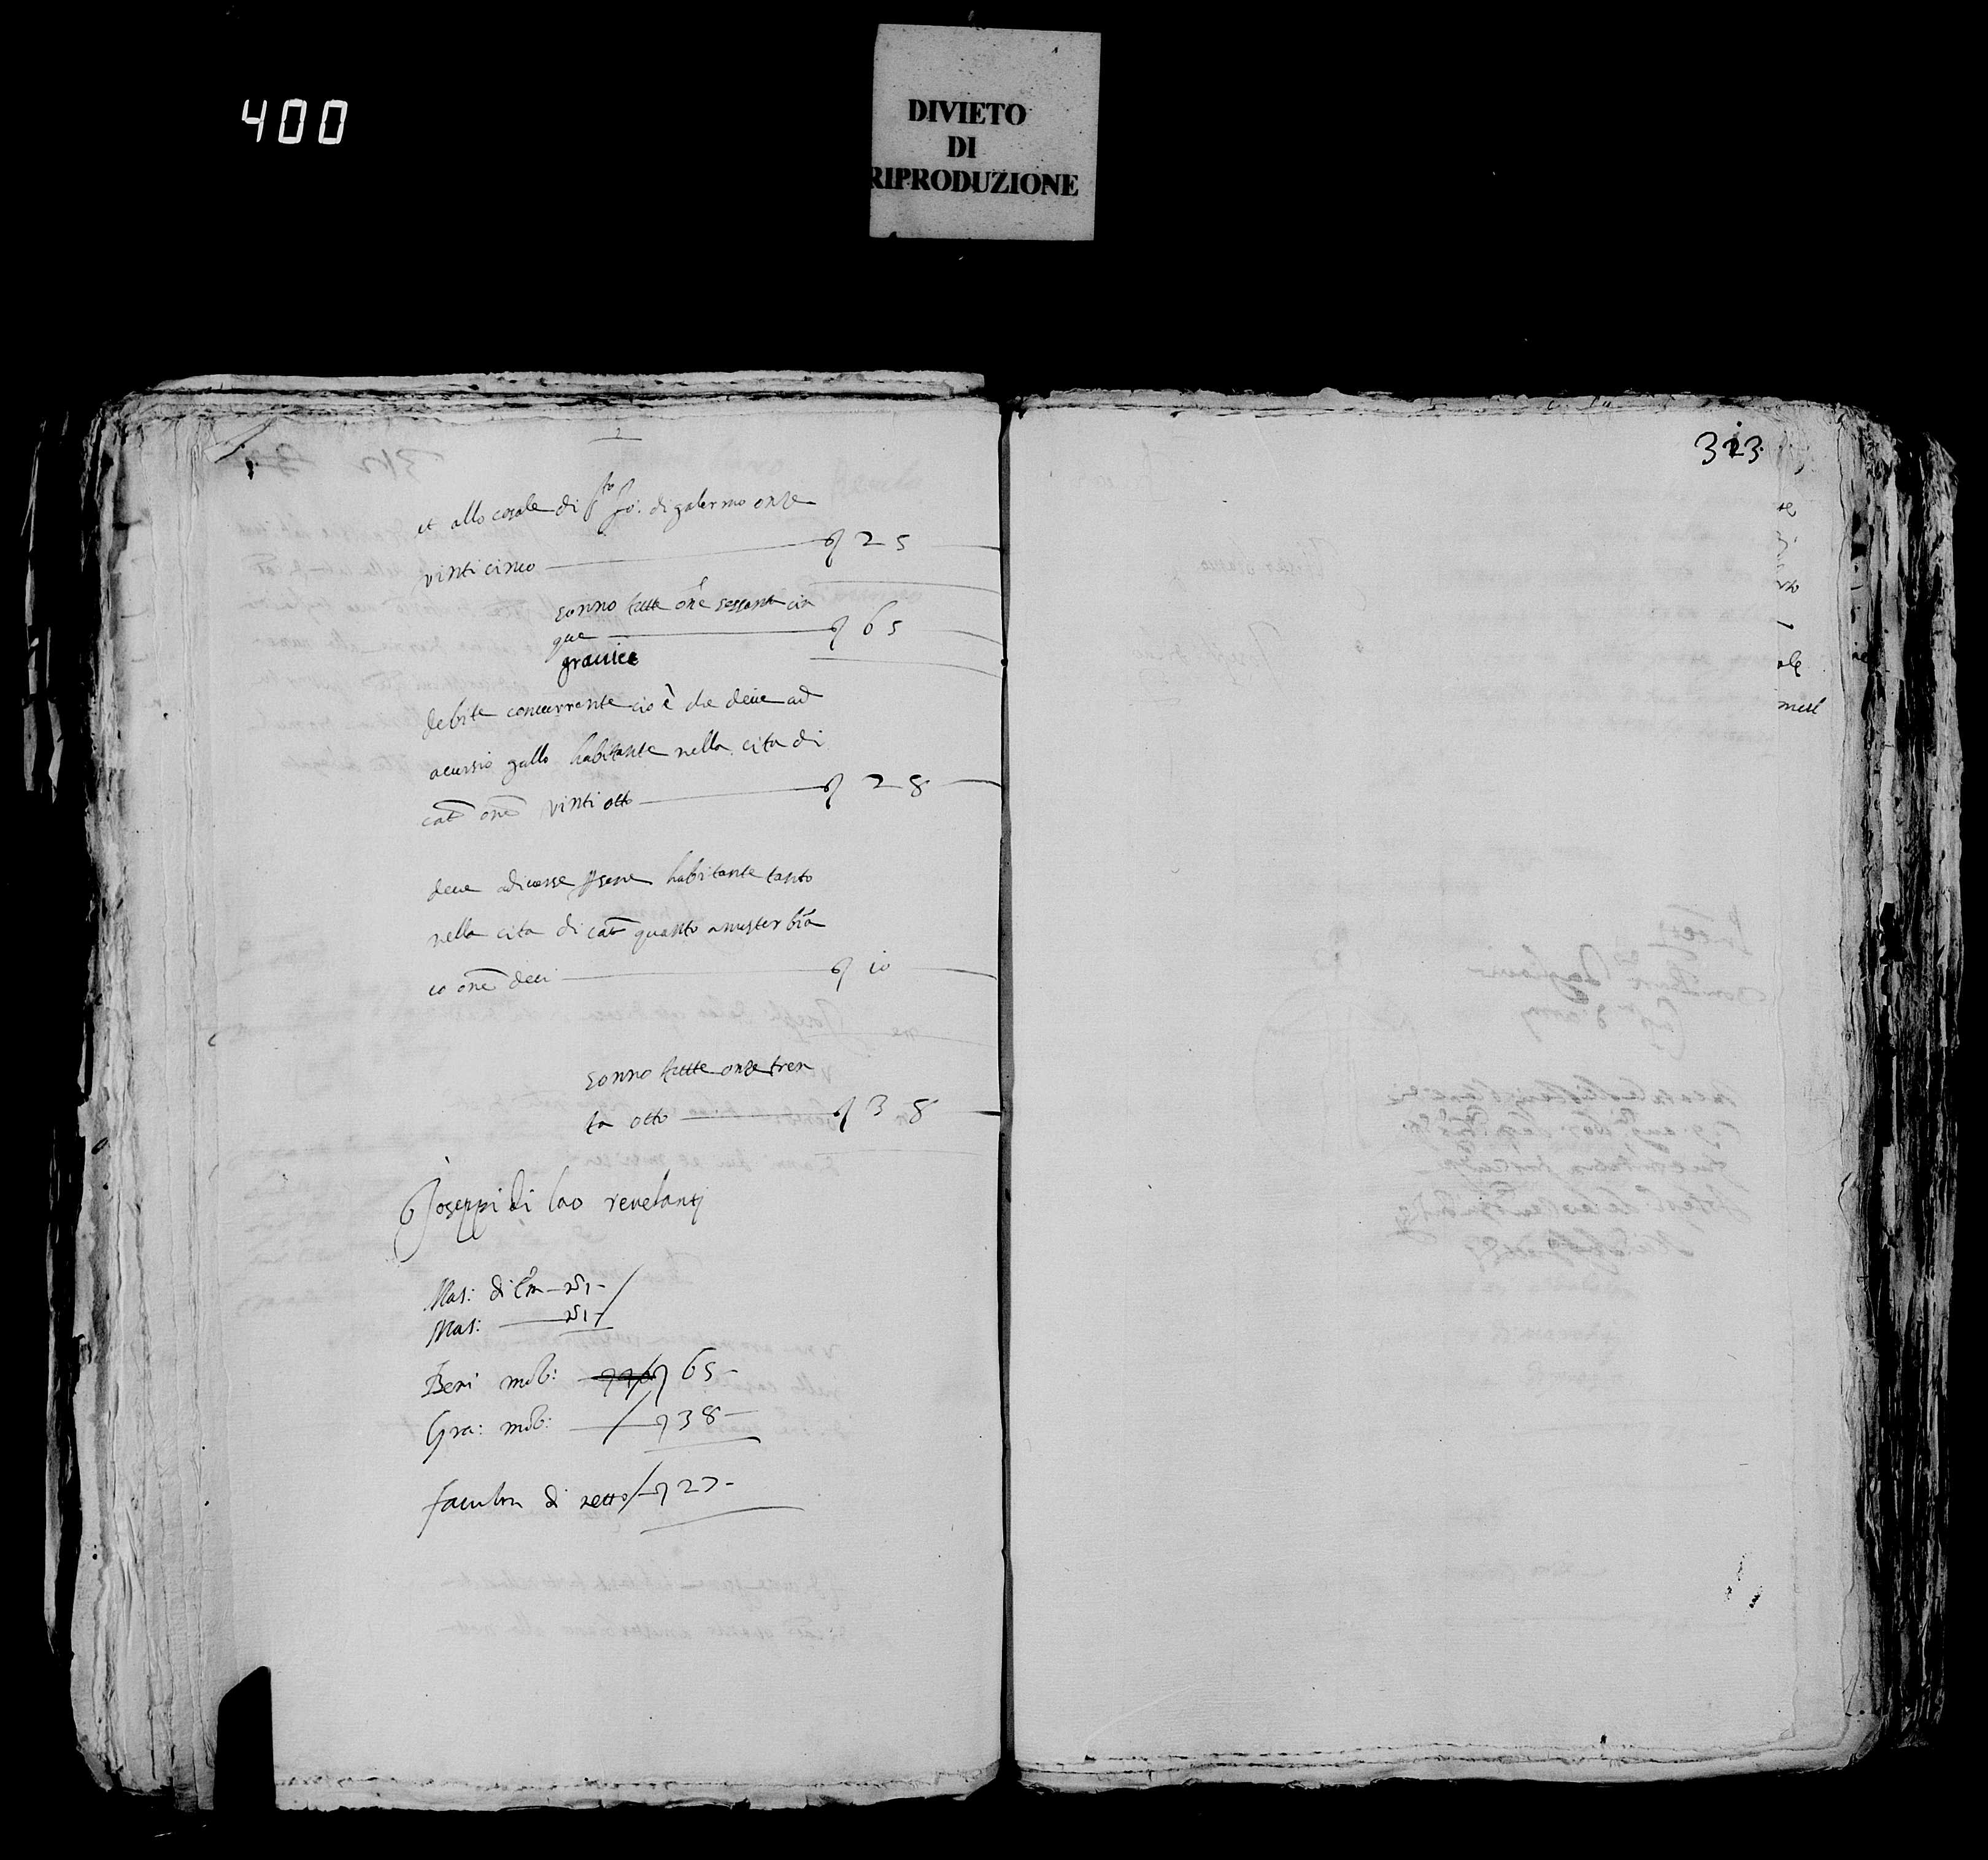 400
DIVIETO
DI
RIPRODUZIONE
et allo casale di sto Jo: di galermo onze
vinti cinco 25
sonno tutte onze sessanta cin
que 65
gravice
debite concurrente cio è che deve ad
acursio gallo habitante nella cita di
cat onze vinti otto 28
deve adiverse persone habitante tanto
nella cita di cat quanto a musterbia
co onze deci 10
sonno tutte onze tren
ta otto 38
Joseppi di lao revelanti
Mas:
Mas:
Beni mob: 65
Gra: mob: 38
faculta di netto 27
323